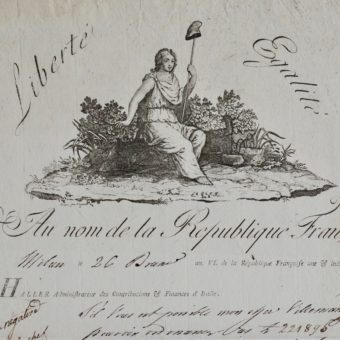 Liberté
Egalité
Au nom de la République Fran
Milan le 26 Brum an VI. de la République Française une & ind
HALLER Administrateur des Contributions & Finances d'Italie.
S'il vous est possible mon cher Villemanzy
pouvoir ordonnancer 221896